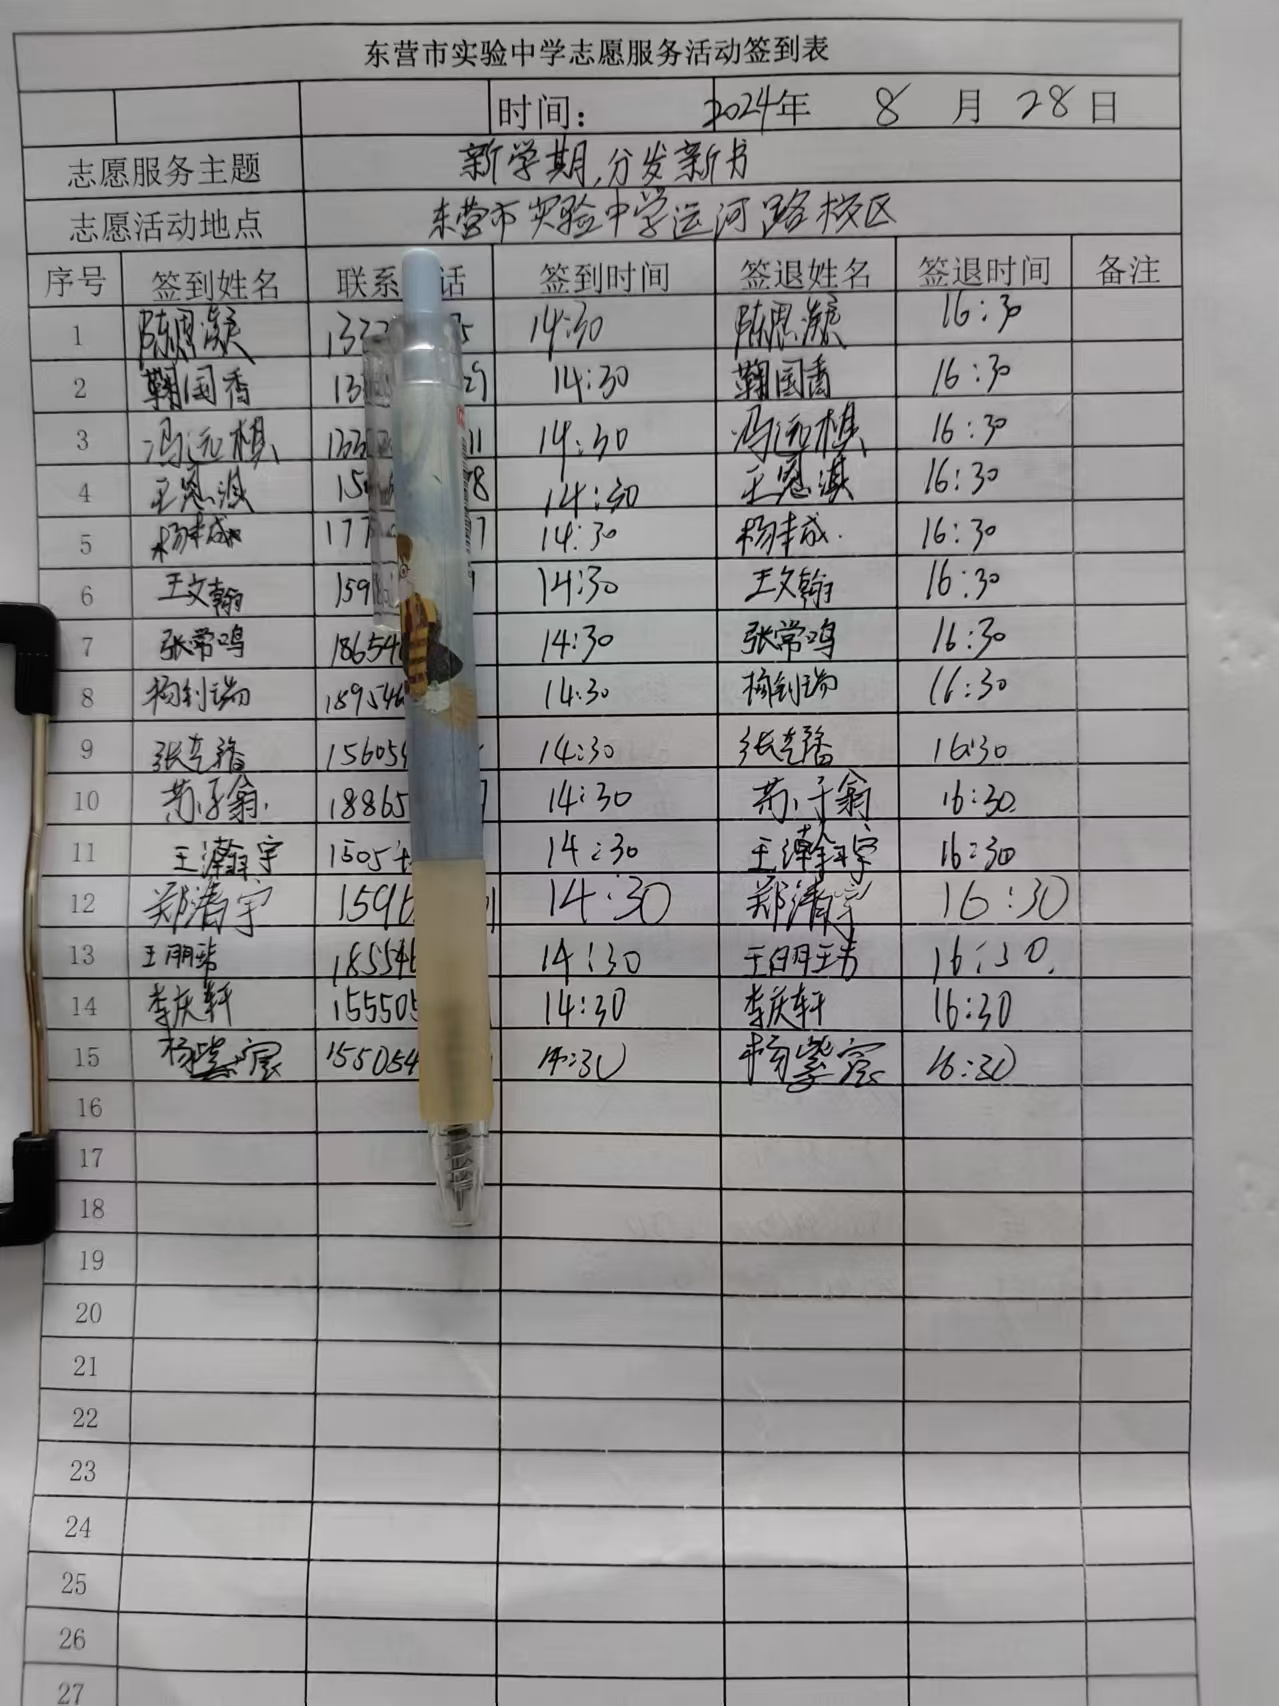 东营市实验中学志愿服务活动签到表
时间： 2024年 8 月 28日
志愿服务主题 新学期,分发新书
志愿活动地点 东营市实验中学运河路校区
序号 签到姓名 联系 话 签到时间 签退姓名 签退时间 备注
1 陈思凝 133 5 14:30 陈思凝 16:30
2 鞠国香 13 14:30 鞠国香 16:30
3 冯远棋 133 11 14:30 冯远棋 16:30
4 王恩淇 15 8 14:30 王恩淇 16:30
5 杨丰成 177 7 14:30 杨丰成. 16:30
6 王文翰 159 14:30 王文翰 16:30
7 张常鸣 18654 14:30 张常鸣 16:30
8 杨钊瑞 159546 14:30 杨钊瑞 16:30
9 15605 14:30 16:30
10 18865 7 14:30 16:30
11 王瀚宇 1505 14:30 王瀚宇 16:30
12 郑清宇 1596 14:30 郑清宇 16:30
13 185546 14:30 16:30.
14 李庆轩 155505 14:30 李庆轩 16:30
15 杨紫宸 155054 14:30 杨紫宸 16:30
16
17
18
19
20
21
22
23
24
25
26
27